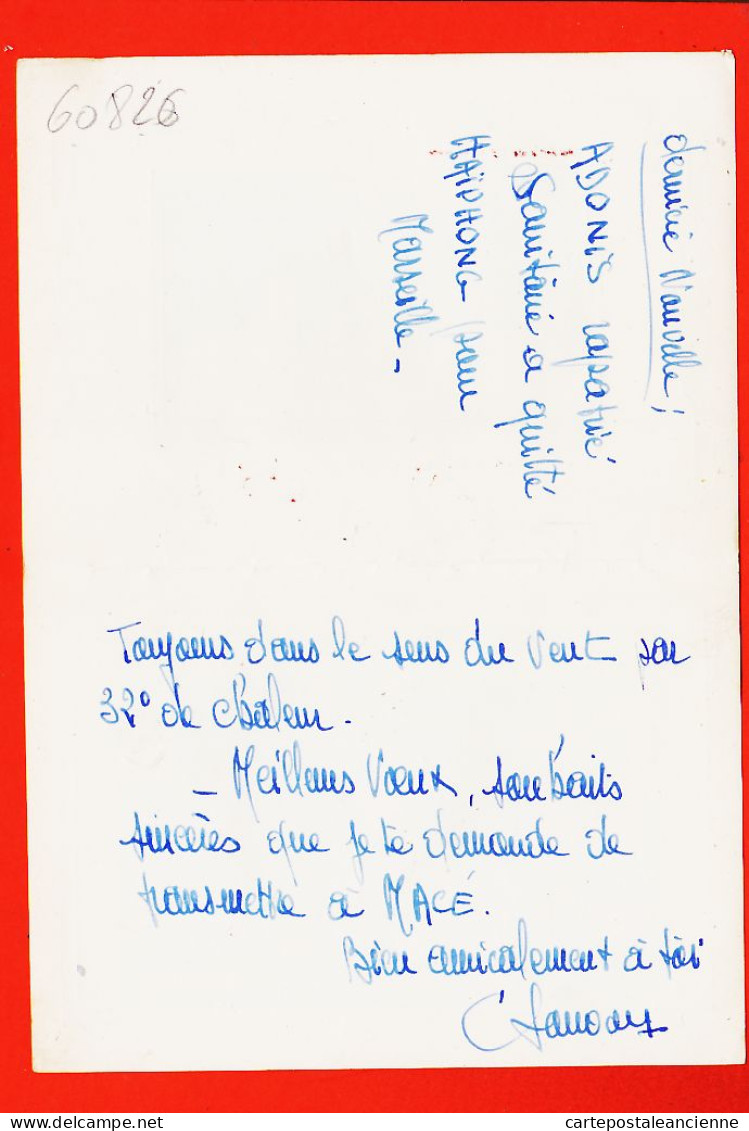 60826
dernière Nouvelle ;
ADONIS rapatrié
Sanitaire a quitté
HAÏPHONG pour
Marseille -
Toujours dans le sens du Vent par
32° de chaleur.
- Meilleurs Voeux, souhaits
sincères que je te demande de
transmettre à MACÉ.
Bien amicalement à toi
delcampe.net
cartepostaleancienne